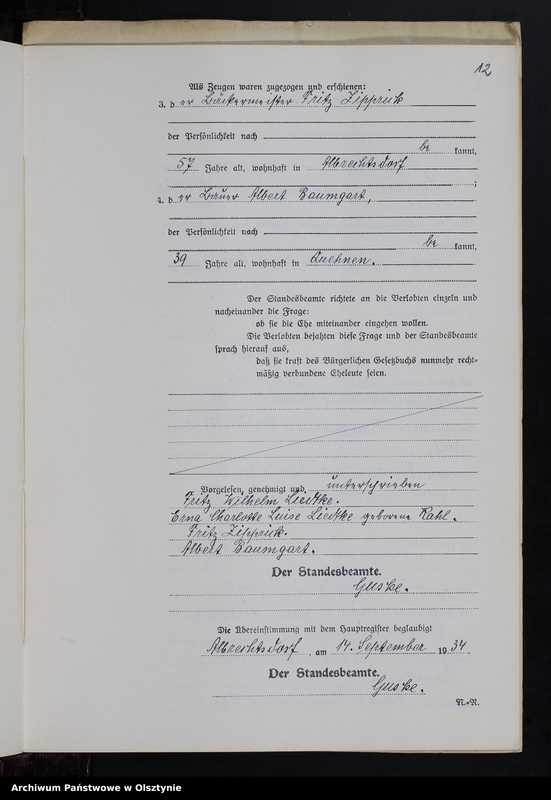 12
Als Zeugen waren zugezogen und erschienen:
3. d er Bäckermeister Fritz Zipprick
der Persönlichkeit nach
be kannt,
57 Jahre alt, wohnhaft in Albrechtsdorf
;
4. d er Bauer Albert Baumgart,
der Persönlichkeit nach
be kannt,
39 Jahre alt, wohnhaft in Quehnen.
Der Standesbeamte richtete an die Verlobten einzeln und
nacheinander die Frage:
ob sie die Ehe miteinander eingehen wollen.
Die Verlobten bejahten diese Frage und der Standesbeamte
sprach hierauf aus,
daß sie kraft des Bürgerlichen Gesetzbuchs nunmehr recht-
mäßig verbundene Eheleute seien.
Vorgelesen, genehmigt und unterschrieben
Fritz Wilhelm Liedtke.
Erna Charlotte Luise Liedtke geborene Kahl.
Fritz Zipprick.
Albert Baumgart.
Der Standesbeamte.
Guske.
Die Übereinstimmung mit dem Hauptregister beglaubigt
Albrechtsdorf, am 14. September 1934.
Der Standesbeamte.
Guske.
N.-R.
Archiwum Państwowe w Olsztynie